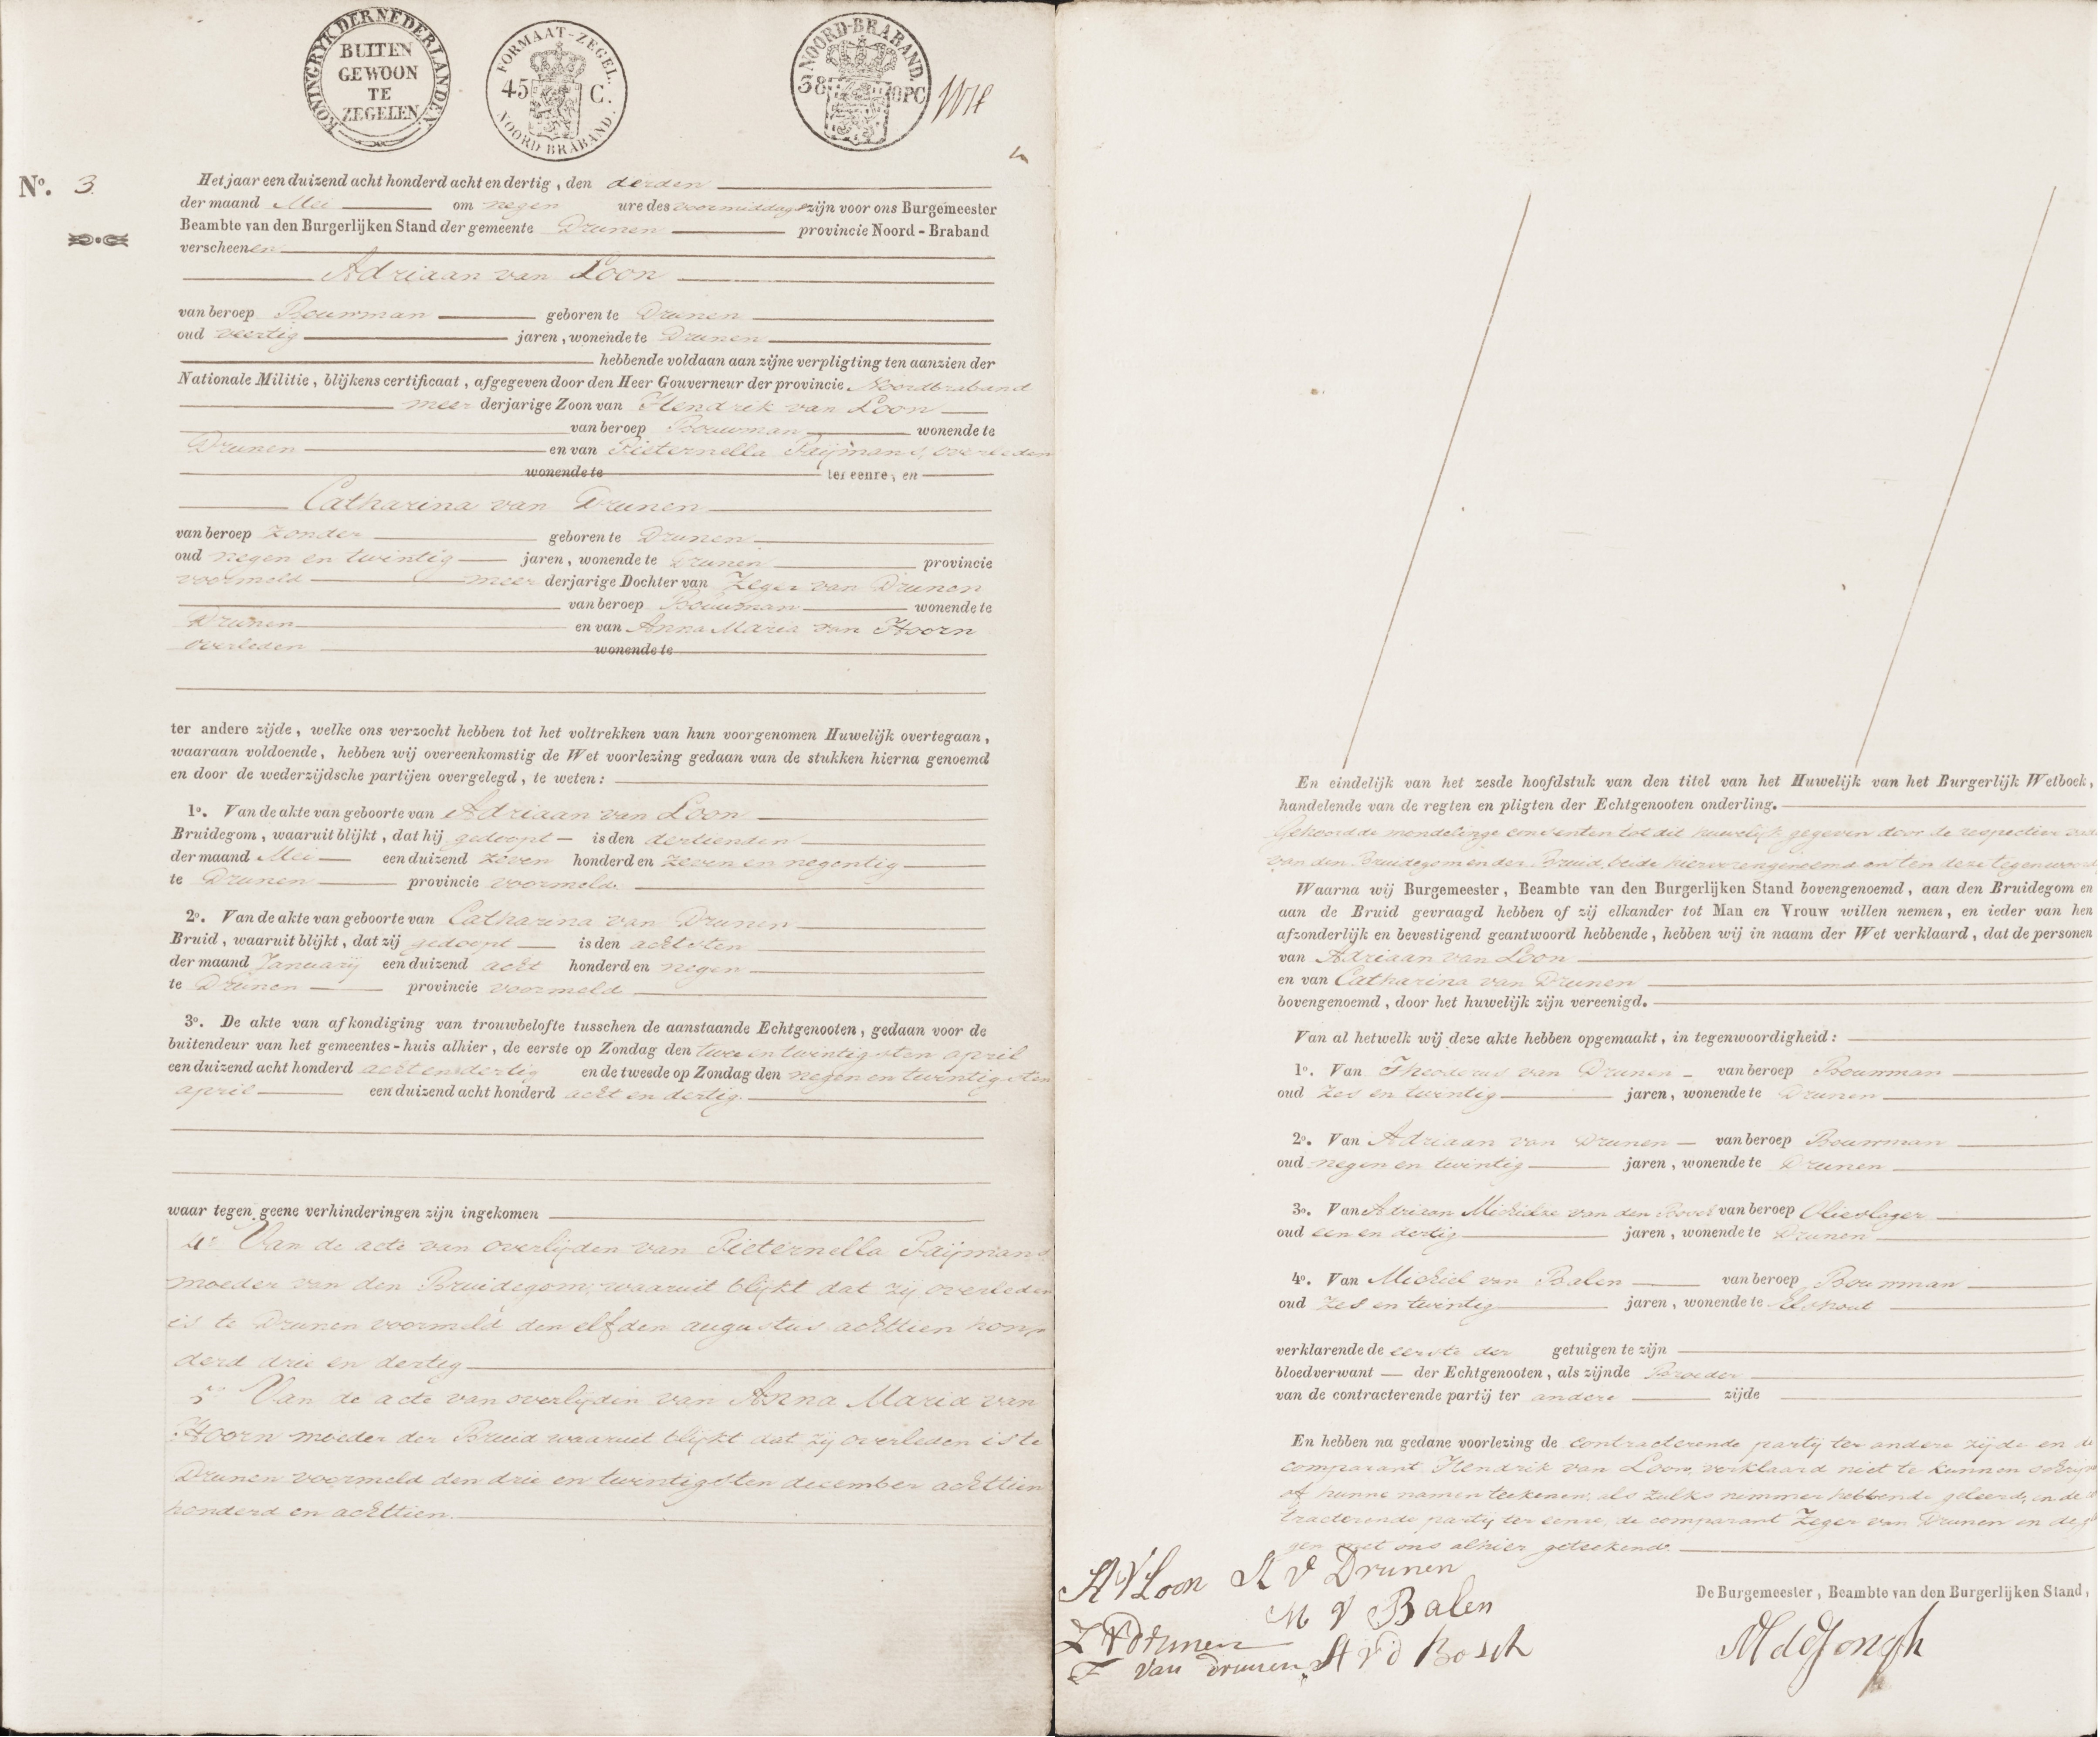 KONINGRYK DER NEDERLANDEN
BUITEN
GEWOON
TE
ZEGELEN
FORMAAT-ZEGEL.
45 C.
NOORD BRABAND.
NOORD-BRABAND.
38 OPC
No. 3.
Het jaar een duizend acht honderd acht en dertig, den derden
der maand Mei om negen ure des voormiddags zijn voor ons Burgemeester
Beambte van den Burgerlijken Stand der gemeente Drunen provincie Noord-Braband
verscheenen
Adriaan van Loon
van beroep Bouwman geboren te Drunen
oud veertig jaren, wonende te Drunen
hebbende voldaan aan zijne verpligting ten aanzien der
Nationale Militie, blijkens certificaat, afgegeven door den Heer Gouverneur der provincie Noordbraband
meer derjarige Zoon van Hendrik van Loon
van beroep Bouwman wonende te
Drunen en van Pieternella Paijmans, overleden
wonende te ter eenre, en
Catharina van Drunen
van beroep zonder geboren te Drunen
oud negen en twintig jaren, wonende te Drunen provincie
voormeld meer derjarige Dochter van Zeger van Drunen
van beroep Bouwman wonende te
Drunen en van Anna Maria van Hoorn
overleden wonende te
ter andere zijde, welke ons verzocht hebben tot het voltrekken van hun voorgenomen Huwelijk overtegaan,
waaraan voldoende, hebben wij overeenkomstig de Wet voorlezing gedaan van de stukken hierna genoemd
en door de wederzijdsche partijen overgelegd, te weten:
1o. Van de akte van geboorte van Adriaan van Loon
Bruidegom, waaruit blijkt, dat hij gedoopt is den dertienden
der maand Mei een duizend zeven honderd en zeven en negentig
te Drunen provincie voormeld
2o. Van de akte van geboorte van Catharina van Drunen
Bruid, waaruit blijkt, dat zij gedoopt is den achtsten
der maand Januarij een duizend acht honderd en negen
te Drunen provincie voormeld
3o. De akte van afkondiging van trouwbelofte tusschen de aanstaande Echtgenooten, gedaan voor de
buitendeur van het gemeentes-huis alhier, de eerste op Zondag den twee en twintigsten april
een duizend acht honderd acht en dertig en de tweede op Zondag den negen en twintigsten
april een duizend acht honderd acht en dertig.
waar tegen geene verhinderingen zijn ingekomen
4o Van de acte van overlijden van Pieternella Paijmans
moeder van den Bruidegom, waaruit blijkt dat zij overleden
is te Drunen voormeld den elfden augustus achttien hon
derd drie en dertig
5o Van de acte van overlijden van Anna Maria van
Hoorn moeder der Bruid waaruit blijkt dat zij overleden is te
Drunen voormeld den drie en twintigsten december achttien
honderd en achttien.
En eindelijk van het zesde hoofdstuk van den titel van het Huwelijk van het Burgerlijk Wetboek,
handelende van de regten en pligten der Echtgenooten onderling.
Gehoord de mondelinge consenten tot dit huwelijk gegeven door de respective
van den Bruidegom en der Bruid, beide hiervorengenoemd en ten deze tegenwoord
Waarna wij Burgemeester, Beambte van den Burgerlijken Stand bovengenoemd, aan den Bruidegom en
aan de Bruid gevraagd hebben of zij elkander tot Man en Vrouw willen nemen, en ieder van hen
afzonderlijk en bevestigend geantwoord hebbende, hebben wij in naam der Wet verklaard, dat de personen
van Adriaan van Loon
en van Catharina van Drunen
bovengenoemd, door het huwelijk zijn vereenigd.
Van al hetwelk wij deze akte hebben opgemaakt, in tegenwoordigheid:
1o. Van Theodorus van Drunen van beroep Bouwman
oud zes en twintig jaren, wonende te Drunen
2o. Van Adriaan van Drunen van beroep Bouwman
oud negen en twintig jaren, wonende te Drunen
3o. Van Adriaan van den van beroep Olieslager
oud een en dertig jaren, wonende te Drunen
4o. Van Michiel van Balen van beroep Bouwman
oud zes en twintig jaren, wonende te Elshout
verklarende de eerste der getuigen te zijn
bloedverwant der Echtgenooten, als zijnde Broeder
van de contracterende partij ter andere zijde
En hebben na gedane voorlezing de contracterende partij ter andere zijde en de
comparant Hendrik van Loon, verklaard niet te kunnen schrijv
of hunne namen teekenen, als zulks nimmer hebbende geleerd, en de
tracterende partij ter eenre, de comparant Zeger van Drunen en de
gen met ons alhier geteekend.
A V Loon A V Drunen
M V Balen
Z V Drunen
van drunen A V D Bosch
De Burgemeester, Beambte van den Burgerlijken Stand,
M de Jongh